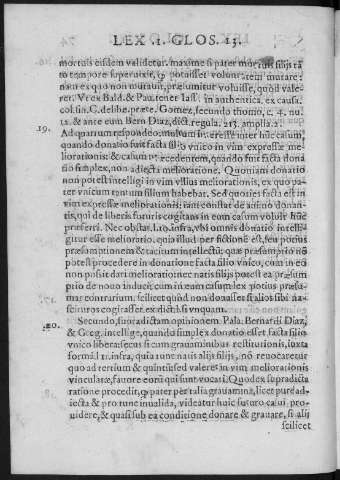 LEX .1. GLOS. 13.
mortuis eisdem validetur. maxime si pater mortuis filijs tã
to tempore superuixit, ꝙ potuisset voluntatem mutare:
nau ex quo non mutauit, præsumitur voluisse, quod vale-
ret. Vt ex Bald. & Pau. tenet Ias. in authentica, ex causa.
col. fin. C. de libe. præte. Gomez, secundo thomo, c. 4. nu.
11. & ante eum Bern Diaz, dict regula. 213. amplia. 2.
19.
Ad quartum respondeo, multum interesse inter huc casum,
quando donatio fuit facta filio vnico in vim expressæ me-
liorationis: & casum præcedentem, quando fuit facta dona
tio simplex, non adiecta melioratione. Quoniam donatio
non potest intelligi in vim vllius meliorationis, ex quo pa-
ter vnicum tantum filium habebat. Sed quoties facta est in
vim expressæ meliorationis: iam constat de animo donan-
tis, qui de liberis futuris cogitans in eum casum voluit hũc
præferri. Nec obstat. l. 10. infra, vbi omnis donatio intelli-
gitur esse melioratio. quia illud per fictionẽ est, seu potius
præsumptionem & tacitum intellectũ: quæ præsumptio nõ
potest procedere in donatione facta filio vnico, cum in eo
non possit dari melioratio: nec natis filijs potest ea præsum
ptio de nouo induci: cum in eam casum lex potius præsu-
mat contrarium. scilicet quòd non donasset si alios sibi na-
scituros cogitasset. ex dict. l. si vnquam.
20.
Secundo, supradictam opinionem. Pala. Bernardi Diaz,
& Greg. intellige, quando simplex donatio esset facta filio
vnico libera: secus si cum grauaminibus restitutionis, iuxta
formã. l. 11. infra, quia tunc natis alijs filijs, nõ reuocaretur
quo ad tertium & quintũ: sed valeret in vim meliorationis
vinculatæ, fauore eorũ qui sunt vocati. Quod ex supradicta
ratione procedit, ꝙ pater per talia grauamina, licet pure ad-
iecta & pro tunc inualida, videatur huic futuro casui pro-
uidere, & quasi sub ea conditione donare & grauare, si alij
scilicet